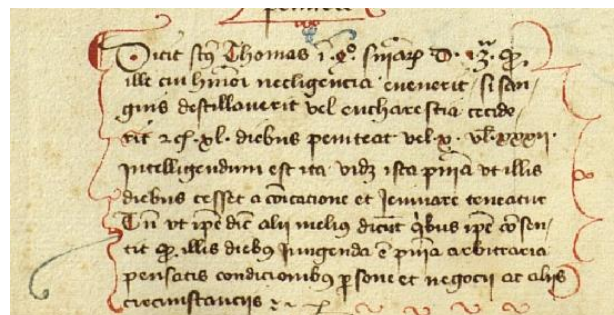 Dicit stus Thomas in 4o sniarum d. 13a. quod
ille cui huiusmoi necligencia evenerit si san
guis destillaverit vel eucharestia cecide
rit etc. xl. diebus peniteat vel x. vel xxxii.
Intelligendum est ita videlz ista pnia vt illis
diebus cesset a coicacione et Jeiunare teneatur
Tn vt ipe dic alii melius dicut qibus ipe cosen
tit quod illis diebus Jungenda e pnia arbitraria
pensatis condicionibus persone et negocii ac aliis
circumstanciis